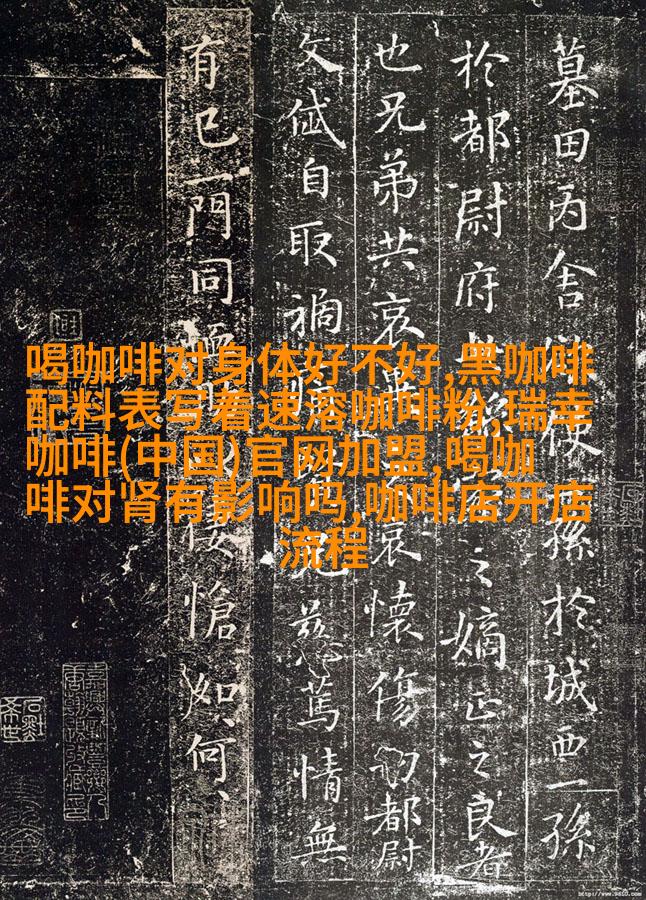 墓田丙舍使孫於城西一孫
於都尉府之嫡正之良者
也兄弟共哀哀懷傷切都尉
文岱自取禍慈篤情無
有已一門同愴如何、、
喝咖啡对身体好不好,黑咖啡
配料表写着速溶咖啡粉,瑞幸
咖啡(中国)官网加盟,喝咖
啡对肾有影响吗,咖啡店开店
流程